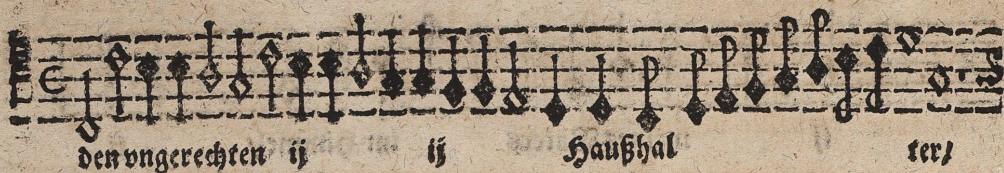 den vngerechten ij ij Haußhal ter/